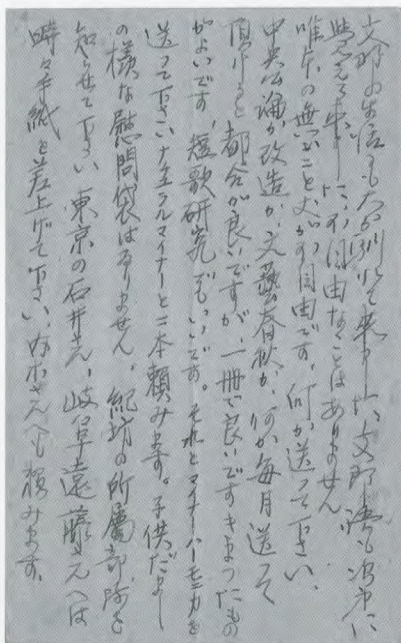 支那の生活も大分馴れて来ました、支那語も次第に
覚えて来ました、不自由なことはありません
唯本の無いこと丈が不自由です、何か送って下さい、
中央公論か改造か、文藝春秋か、何か毎月送って
頂けると都合が良いですが、一冊で良いですきまつたもの
がよいです、短歌研究でもいいです。それとマイナーハーモニカを
送って下さい ナチュラルマイナーと二本頼みます。子供だまし
の様な慰問袋はいりません。紀坊の所属部隊を
知らせて下さい 東京の石井さん、岐阜遠藤さんへは
時々手紙を差上げて下さい、さんへも頼みます。